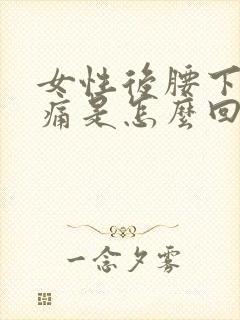 女性後腰下
痛是怎麼回
一念夕雾